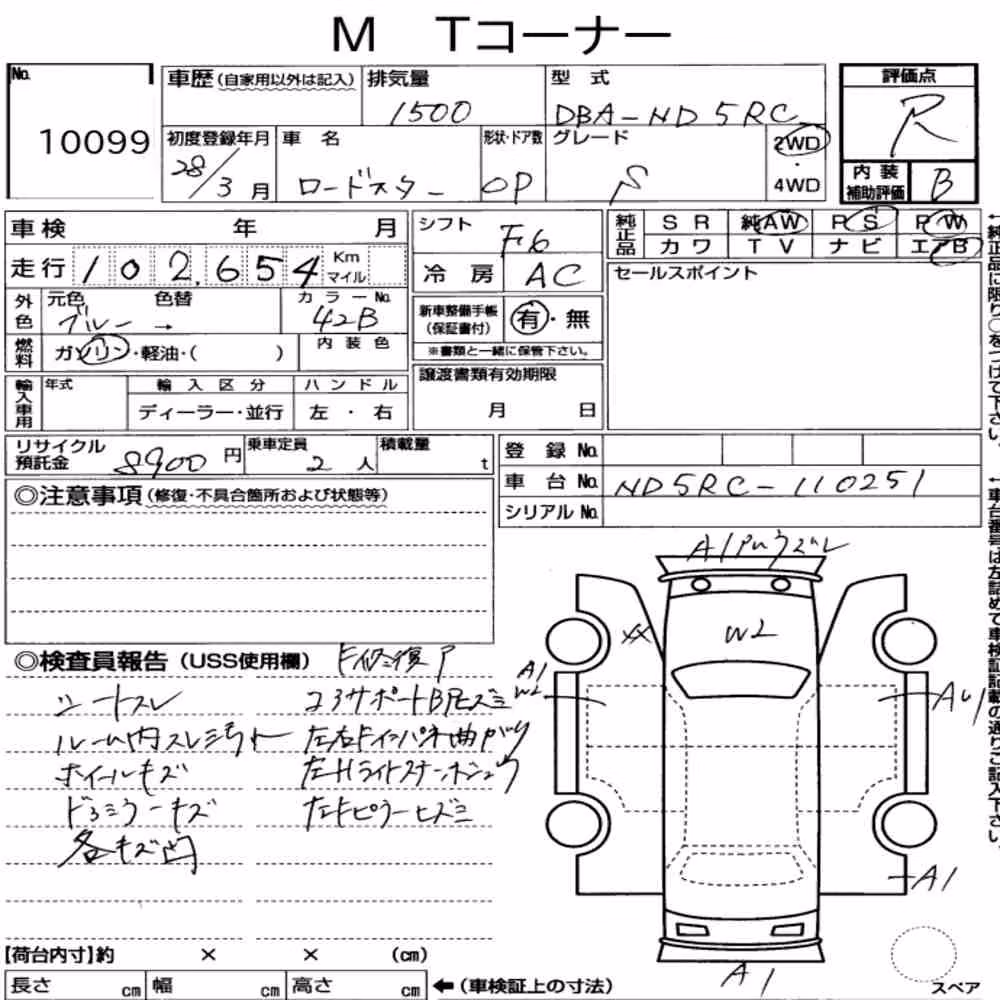 M Tコーナー
No.
10099
車歴 (自家用以外は記入)
排気量
1500
型 式
DBA-ND5RC
評価点
R
初度登録年月
28/3月
車 名
ロードスター
形状・ドア数
OP
グレード
S
2WD
・
4WD
内 装
補助評価
B
車検 年 月
走行 102,654 Km
マイル
シフト
F6
冷 房
AC
純正品
S R 純AW P S P W
カワ T V ナビ エアB
セールスポイント
外色
元色 色替
ブルー →
カラーNo.
42B
新車整備手帳
(保証書付)
有・無
※書類と一緒に保管下さい。
燃料
ガソリン・軽油・( )
内 装 色
輸入車用
年式
輸 入 区 分
ディーラー・並行
ハ ン ド ル
左 ・ 右
譲渡書類有効期限
月 日
リサイクル
預託金
8900 円
乗車定員
2 人
積載量
t
登 録 No.
車 台 No.
ND5RC-110251
シリアル No.
◎注意事項 (修復・不具合箇所および状態等)
◎検査員報告 (USS使用欄)
シートスレ
ルーム内スレ汚れ
ホイールキズ
ドアミラーキズ
各キズ凹
コアサポートBPヒズミ
左右Fインパネ曲がり
左Fピラーヒズミ
A1
W2
XX
W2
A1
A1
A1
スペア
【荷台内寸】約 × × (cm)
長さ cm 幅 cm 高さ cm
←(車検証上の寸法)
←純正品に限り○をつけて下さい。
←車台番号は左詰めで車検証記載の通りご記入下さい。